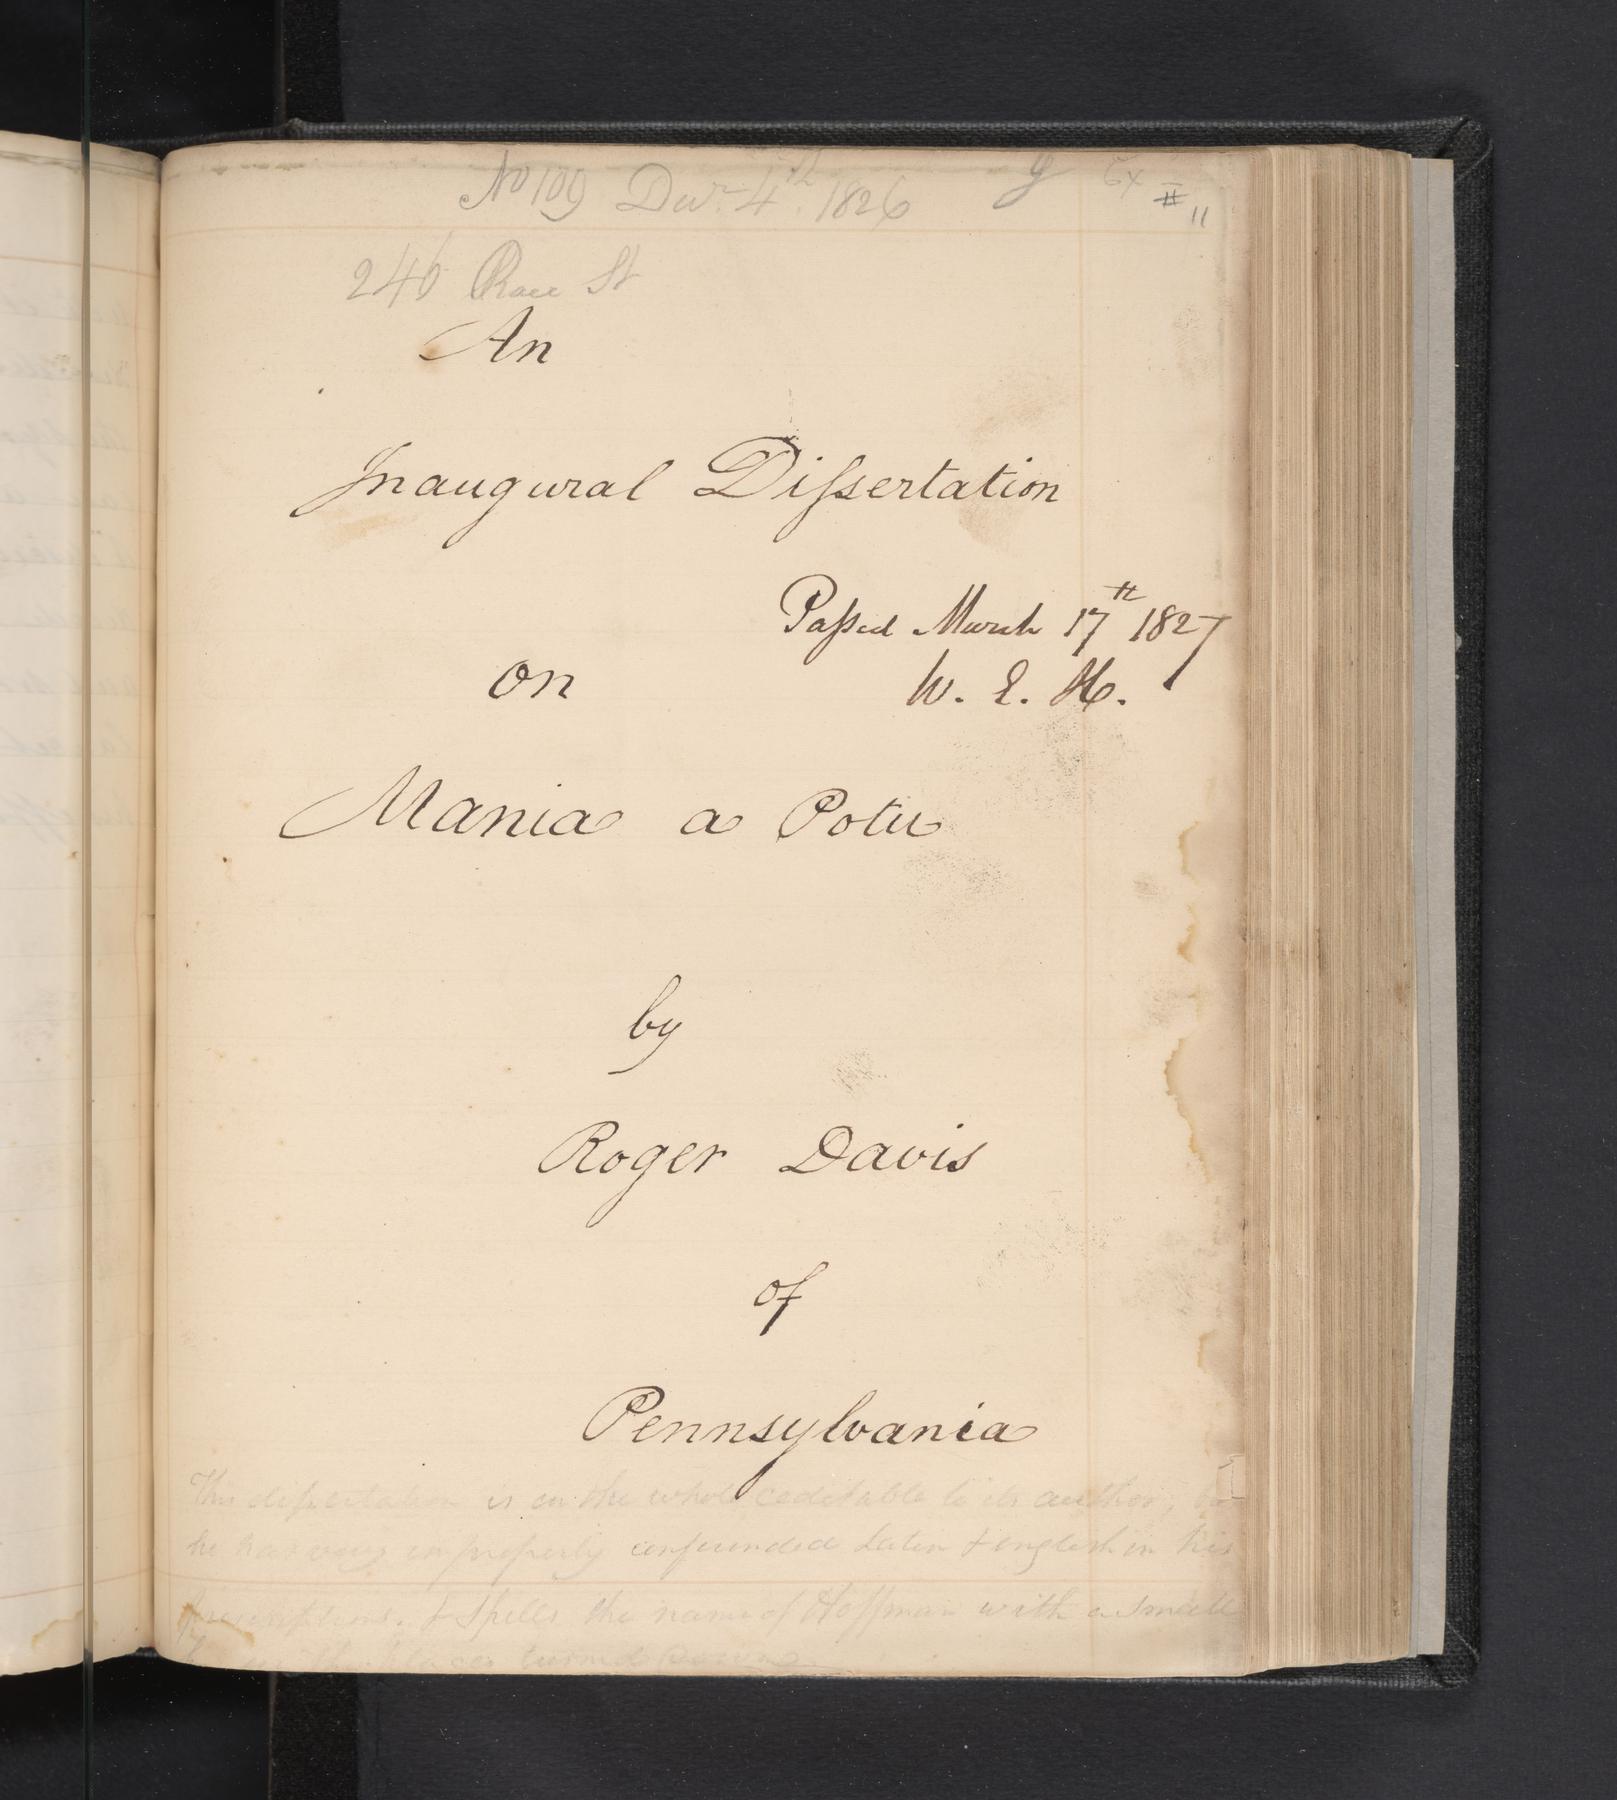 No 109 Decr. 4th. 1826
246 Race St
An
Inaugural Dissertation
Passed March 17th 1827
on
W. E. H.
Mania a Potu
by
Roger Davis
of
Pennsylvania
This dissertation is on the whole creditable to its author, but
he has very improperly confounded Latin & english in his
prescriptions. & spells the name of Hoffman with a small
places turned down